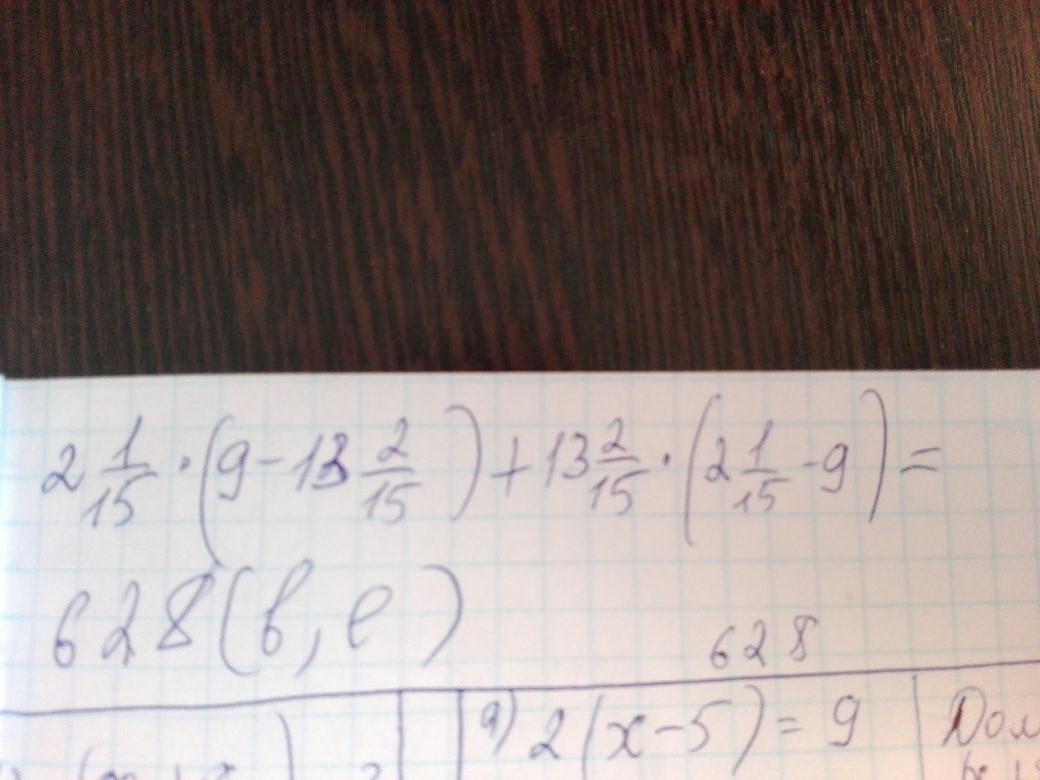 2 1/15 · (9 - 13 2/15) + 13 2/15 · (2 1/15 - 9) =
628 (в, е)
628
а) 2(x - 5) = 9